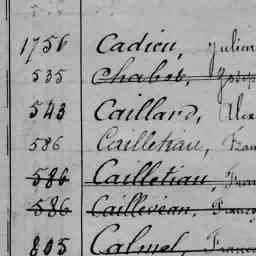 1756 Cadieu, Julien
535 Chabot, Josep
543 Caillard, Alex
586 Cailletiau, Fran
586 Cailletiau, Fran
586 Caillevean, Franço
805 Calmel, Franc